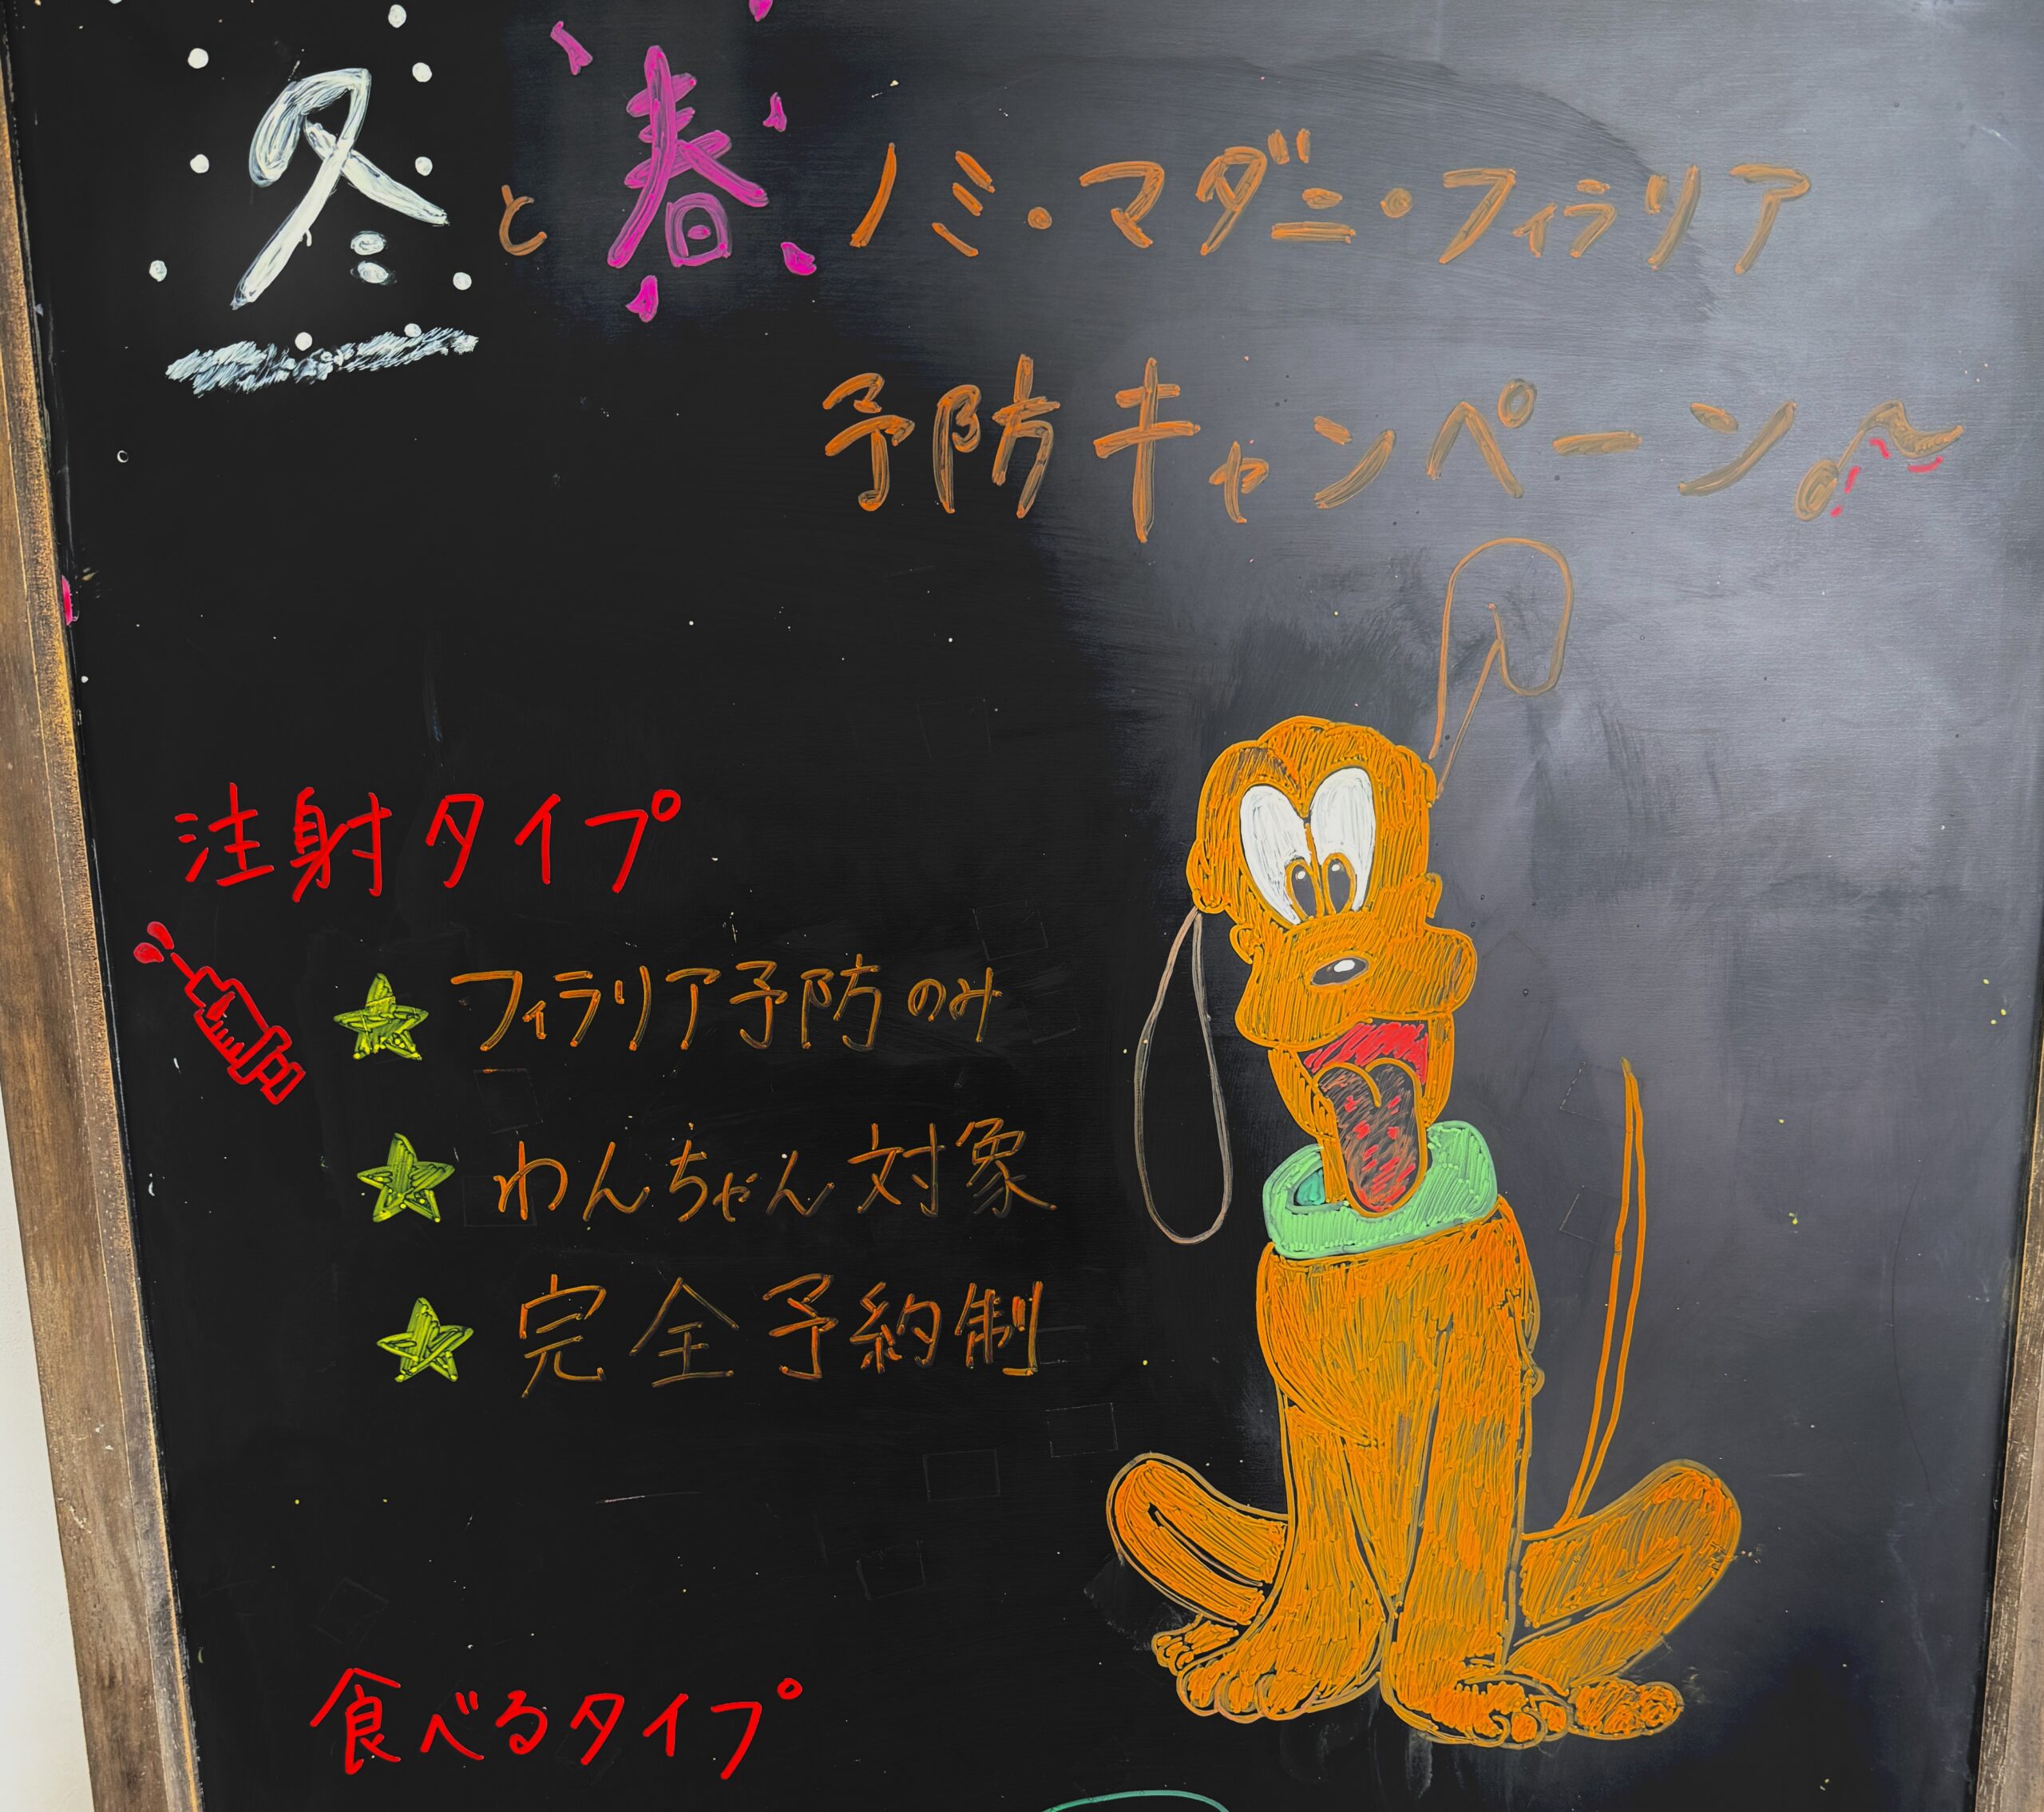 冬と春 ノミ・マダニ・フィラリア
予防キャンペーン♪
注射タイプ
フィラリア予防のみ
わんちゃん対象
完全予約制
食べるタイプ